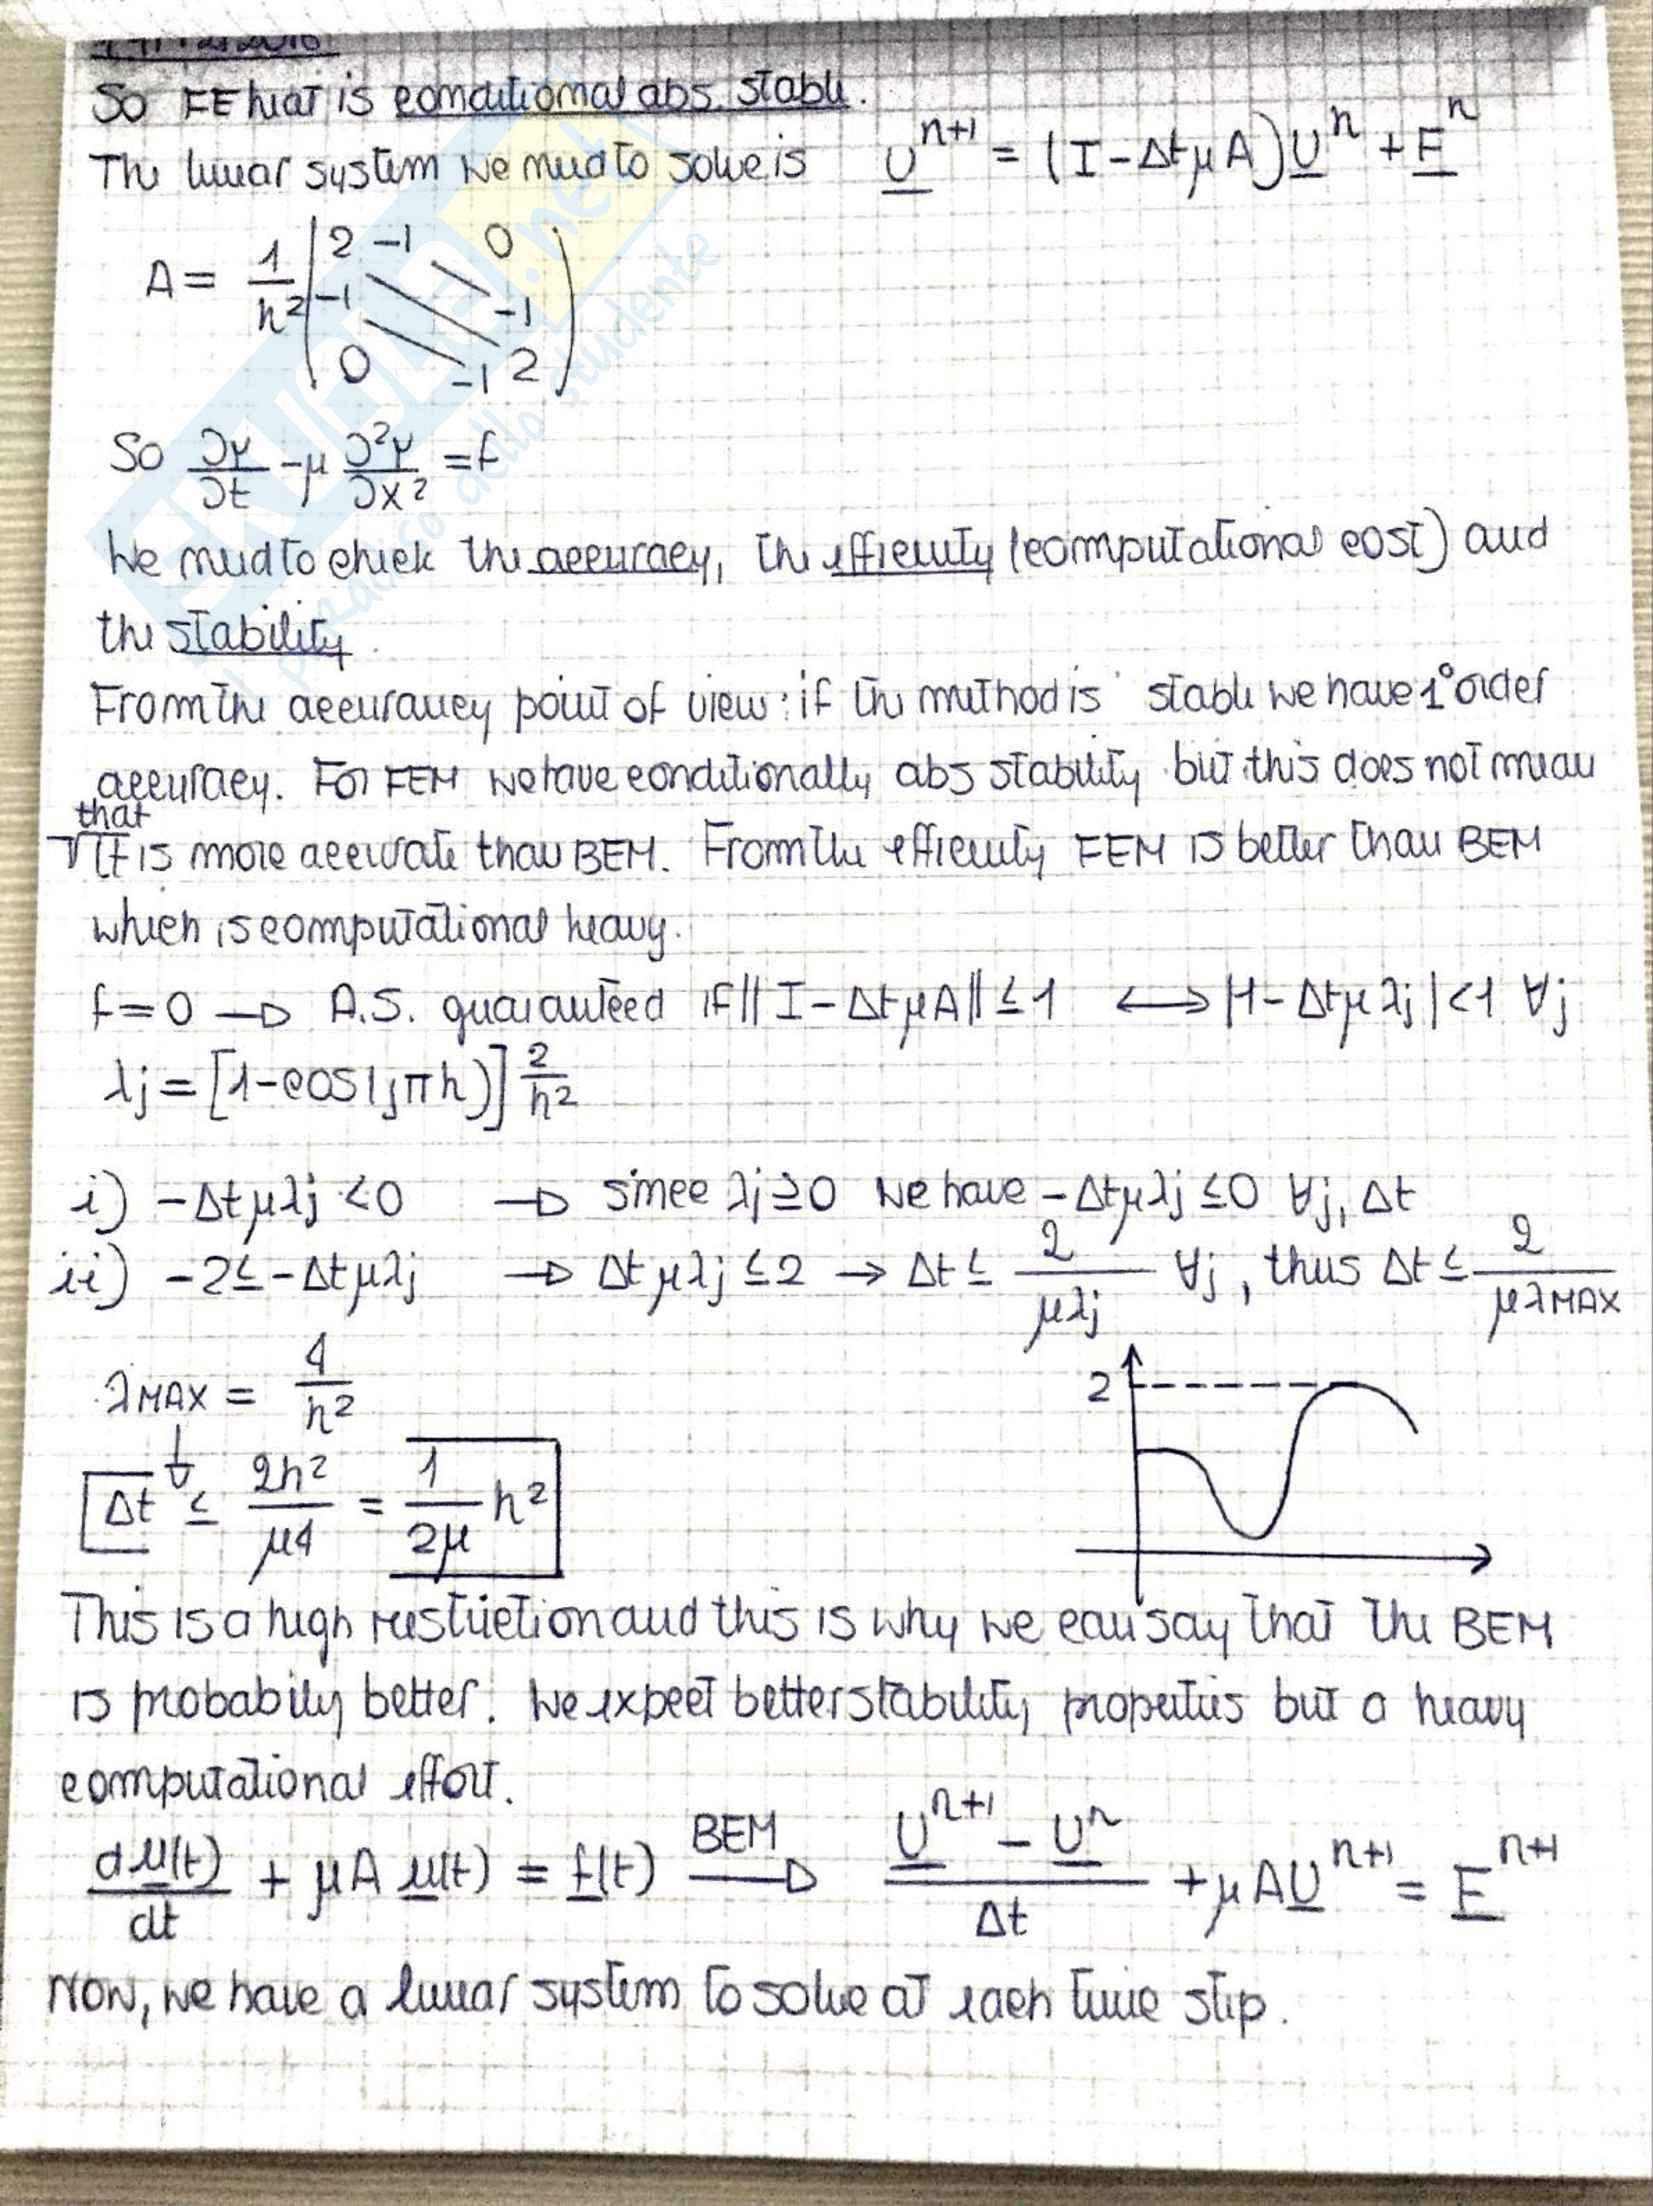 So FE heat is conditional abs. stable.
The linear system we need to solve is U^{n+1} = (I - Δt μ A) U^n + F^n
A = 1/h² ( 2 -1 0
-1 -1
0 -1 2 )
So ∂u/∂t - μ ∂²u/∂x² = f
We need to check the accuracy, the efficiency (computational cost) and
the stability.
From the accurancy point of view: if the method is stable we have 1° order
accuracy. For FEM we have conditionally abs stability but this does not mean
that
√ it is more accurate than BEM. From the efficienty FEM is better than BEM
which is computational heavy.
f = 0 → A.S. guaranteed if || I - Δt μ A || ≤ 1 ⟷ |1 - Δt μ λj| < 1 ∀j
λj = [1 - cos(jπh)] 2/h²
i) -Δt μ λj < 0 → since λj ≥ 0 we have -Δt μ λj ≤ 0 ∀j, Δt
ii) -2 ≤ -Δt μ λj → Δt μ λj ≤ 2 → Δt ≤ 2/(μλj) ∀j, thus Δt ≤ 2/(μλMAX)
λMAX = 4/h²
2
↓
Δt ≤ 2h²/(μ4) = 1/(2μ) h²
This is a high restriction and this is why we can say that the BEM
is probabily better. We expect better stability properties but a heavy
computational effort.
du(t)/dt + μ A u(t) = f(t) BEM → (U^{n+1} - U^n)/Δt + μ A U^{n+1} = F^{n+1}
Now, we have a linear system to solve at each time step.
SKUOLA.net
il paradiso dello studente